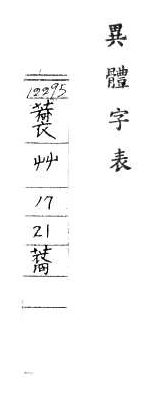 異體字表
12295
艸
17
21